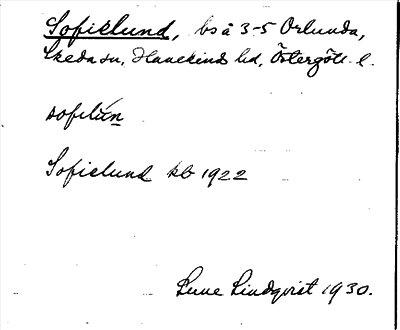 Sofielund, bs å 3-5 Orlunda,
Skeda sn, Hanekinds hd, Östergötl. l.
sofilún
Sofielund kb 1922
Sune Lindqvist 1930.